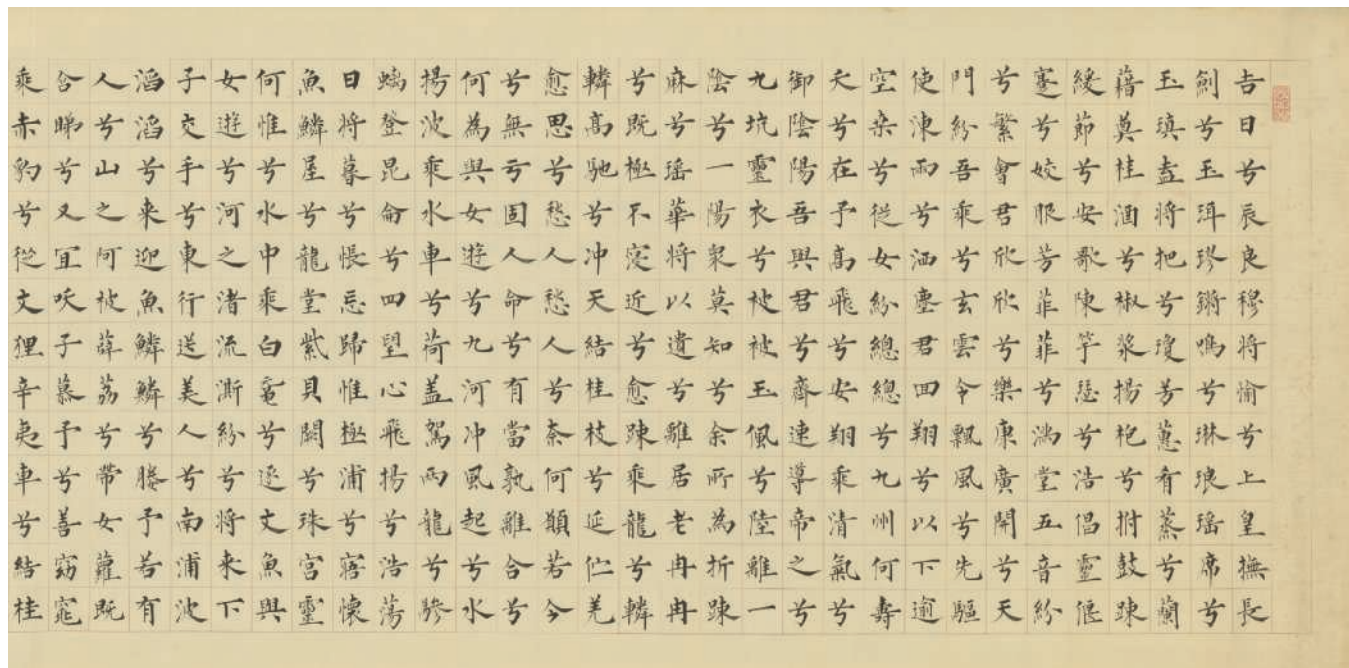 吉日兮辰良穆將愉兮上皇撫長
劍兮玉珥璆鏘鳴兮琳琅瑤席兮
玉瑱盍將把兮瓊芳蕙肴蒸兮蘭
藉奠桂酒兮椒漿揚枹兮拊鼓踈
緩節兮安歌陳竽瑟兮浩倡靈偃
蹇兮姣服芳菲菲兮滿堂五音紛
兮繁會君欣欣兮樂康廣開兮天
門紛吾乘兮玄雲令飄風兮先驅
使涷雨兮洒塵君回翔兮以下逾
空桒兮從女紛總總兮九州何壽
夭兮在予高飛兮安翔乘清氣兮
御陰陽吾與君兮齋速導帝之兮
九坑靈衣兮被被玉佩兮陸離一
陰兮一陽衆莫知兮余所為折踈
麻兮瑤華將以遺兮離居老冉冉
兮既極不寖近兮愈踈乘龍兮轔
轔高馳兮冲天結桂枝兮延伫羌
愈思兮愁人愁人兮奈何願若今
兮無亏固人命兮有當孰離合兮
何為與女遊兮九河冲風起兮水
揚波乘水車兮荷盖駕兩龍兮驂
螭登昆侖兮四望心飛揚兮浩蕩
日將暮兮悵忘歸惟極浦兮寤懷
魚鱗屋兮龍堂紫貝闕兮珠宮靈
何惟兮水中乘白黿兮逐文魚與
女遊兮河之渚流澌紛兮將來下
子交手兮東行送美人兮南浦波
滔滔兮來迎魚鱗鱗兮媵予若有
人兮山之阿被薜荔兮帶女蘿既
含睇兮又宜咲子慕予兮善窈窕
乘赤豹兮從文狸辛夷車兮結桂